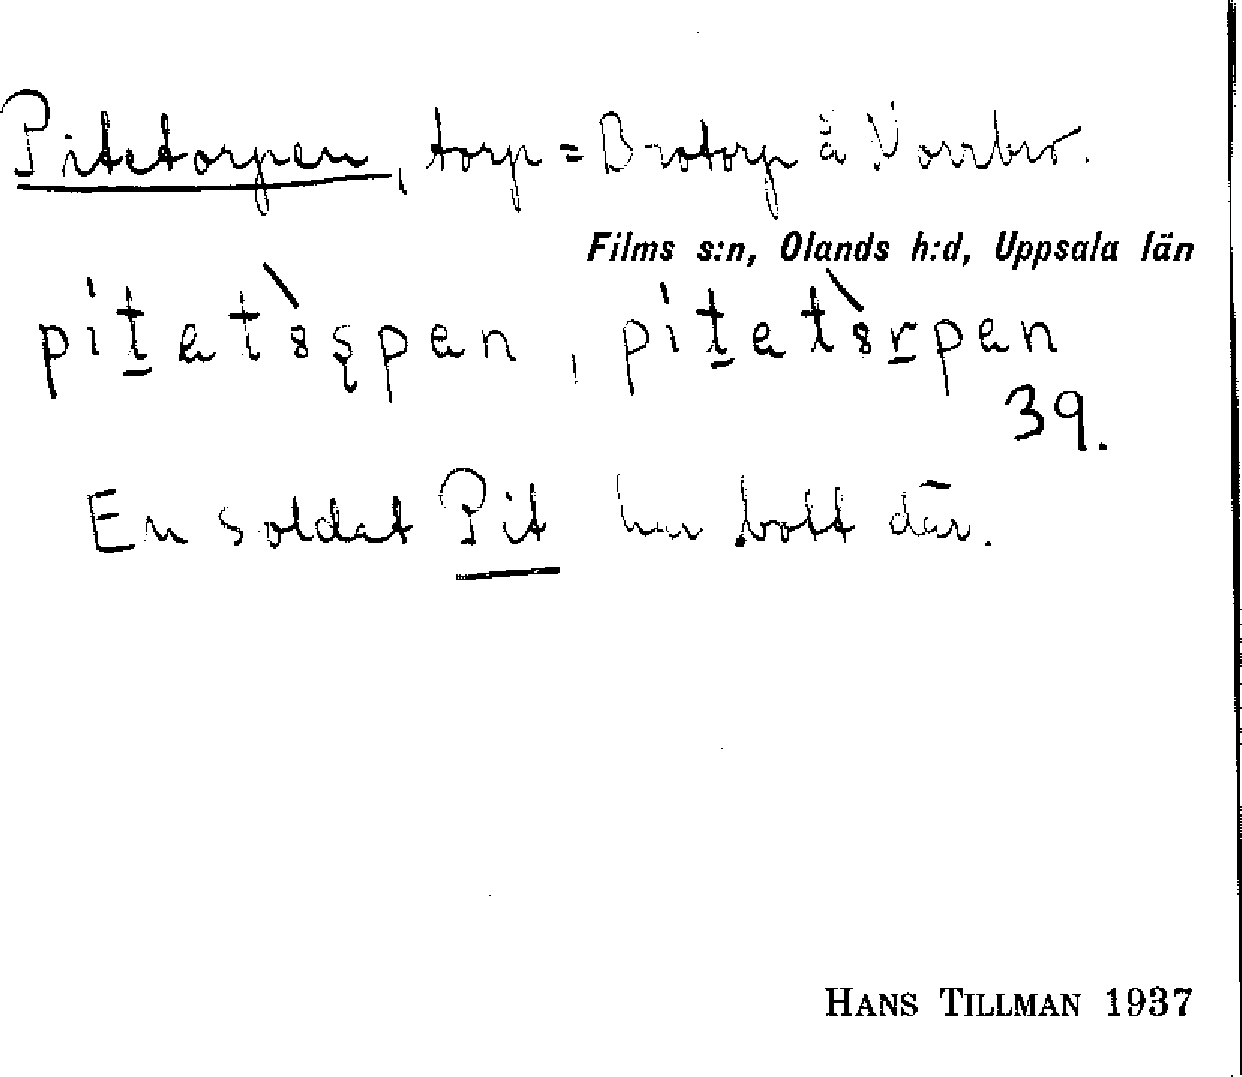 Pitetorpen, torp = Brotorp å Vorrbro.
Films s:n, Olands h:d, Uppsala län
pi̠tetòșpen, pi̠tetòr̠pen
39.
En soldat Pit har bott där.
HANS TILLMAN 1937